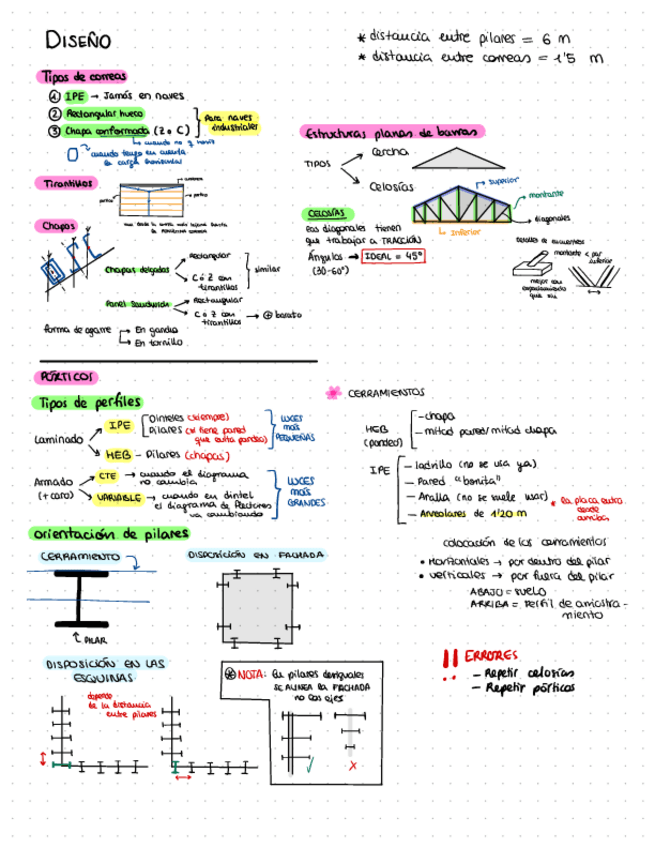 DISEÑO
* distancia entre pilares = 6 m
* distancia entre correas = 1'5 m
Tipos de correas
1 IPE → Jamás en naves
2 Rectangular hueco
3 Chapa conformada (Z o C)
Para naves
industriales
cuando tengo en cuenta
la carga horizontal
Estructuras planas de barras
TIPOS
Cercha
Celosías
superior
montante
diagonales
inferior
Tirantillos
CELOSÍAS
Las diagonales tienen
que trabajar a TRACCIÓN
Ángulos → IDEAL = 45°
(30-60°)
Detalles de encuentros
montante < par
inferior
mejor con
espaciamiento
que sin
Chapas
Chapas delgadas
Rectangular
C ó Z con
tirantillos
similar
Panel Sandwich
Rectangular
C ó Z con
tirantillos → + barato
forma de agarre
En gancho
En tornillo
PÓRTICOS
Tipos de perfiles
Laminado
IPE
Dinteles (siempre)
Pilares (si tiene pared
que evita pandeo)
HEB - Pilares (chapas)
LUCES
más
PEQUEÑAS
Armado
(+ caro)
CTE → cuando el diagrama
no cambia
VARIABLE → cuando en dintel
el diagrama de flectores
va cambiando
LUCES
más
GRANDES
CERRAMIENTOS
HEB
(pandeo)
- chapa
- mitad pared/mitad chapa
IPE
- ladrillo (no se usa ya)
- Pared "bonita"
- Aralla (no se suele usar)
- Alveolares de 1'20 m
* la placa entra
desde
arriba
orientación de pilares
CERRAMIENTO
PILAR
DISPOSICIÓN EN FACHADA
colocación de los cerramientos
• Horizontales → por dentro del pilar
• verticales → por fuera del pilar
ABAJO = suelo
ARRIBA = Perfil de arriostra-
miento
DISPOSICIÓN EN LAS
ESQUINAS
depende
de la distancia
entre pilares
* NOTA: En pilares desiguales
SE ALINEA LA FACHADA
no los ejes
!! ERRORES
- Repetir celosías
- Repetir pórticos